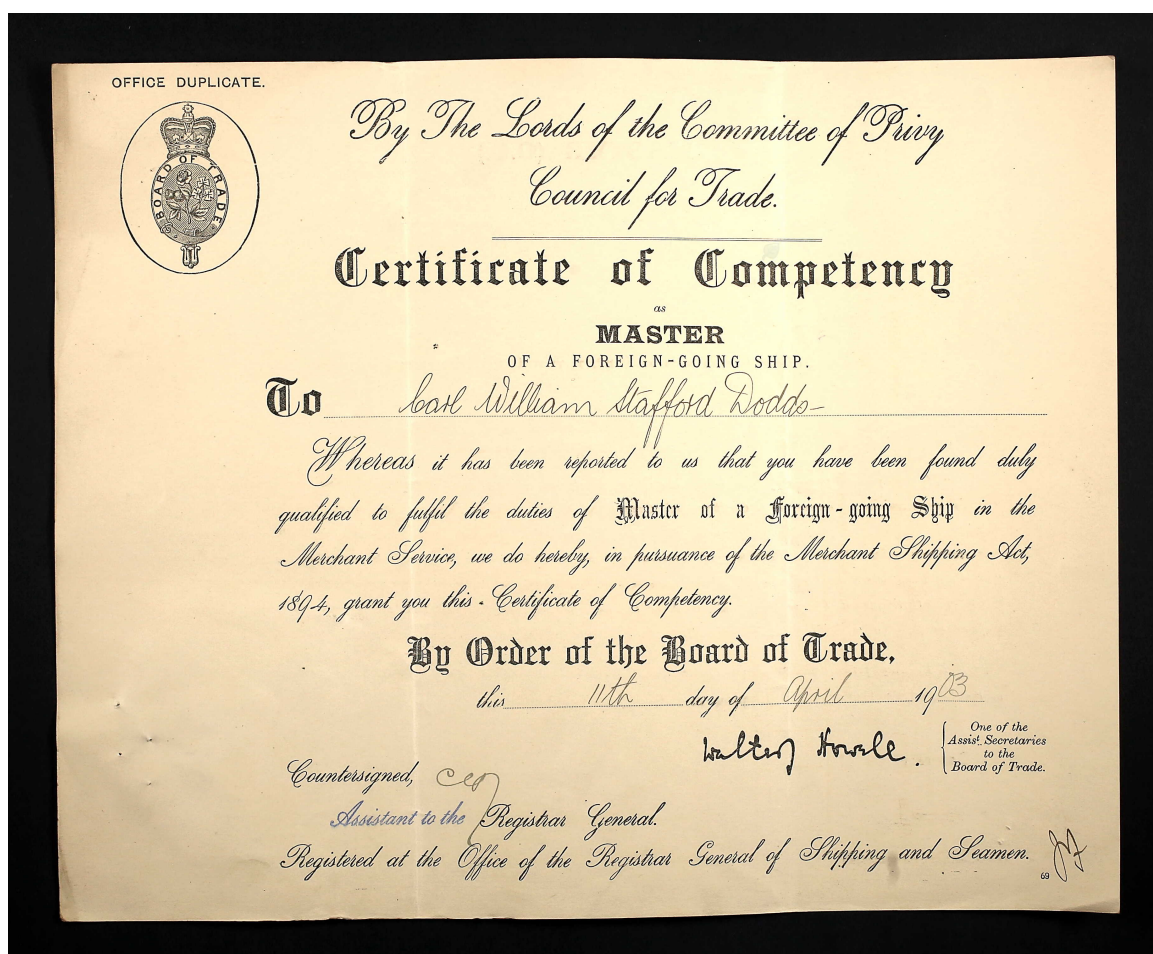 OFFICE DUPLICATE.
BOARD OF TRADE
By The Lords of the Committee of Privy
Council for Trade.
Certificate of Competency
as
MASTER
OF A FOREIGN-GOING SHIP.
To Carl William Stafford Dodds
Whereas it has been reported to us that you have been found duly
qualified to fulfil the duties of Master of a Foreign-going Ship in the
Merchant Service, we do hereby, in pursuance of the Merchant Shipping Act,
1894, grant you this Certificate of Competency.
By Order of the Board of Trade,
this 11th day of April 1903
Walter J Howell.
One of the
Assist. Secretaries
to the
Board of Trade.
Countersigned,
Assistant to the Registrar General.
Registered at the Office of the Registrar General of Shipping and Seamen.
69